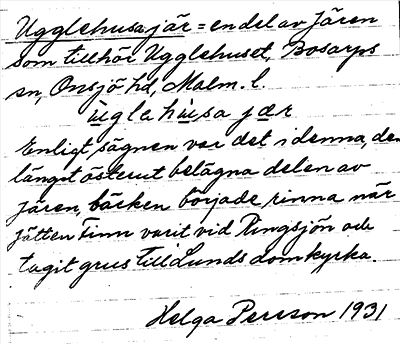 Ugglehusa jär = en del av Jären
som tillhör Ugglehuset, Bosarps
sn, Onsjö hd, Malm. l.
ùglehùsa jær
Enligt sägnen var det i denna, den
längst österut belägna delen av
Jären, bäcken började rinna när
jätten Finn varit vid Ringsjön och
tagit grus till Lunds domkyrka.
Helga Persson 1931